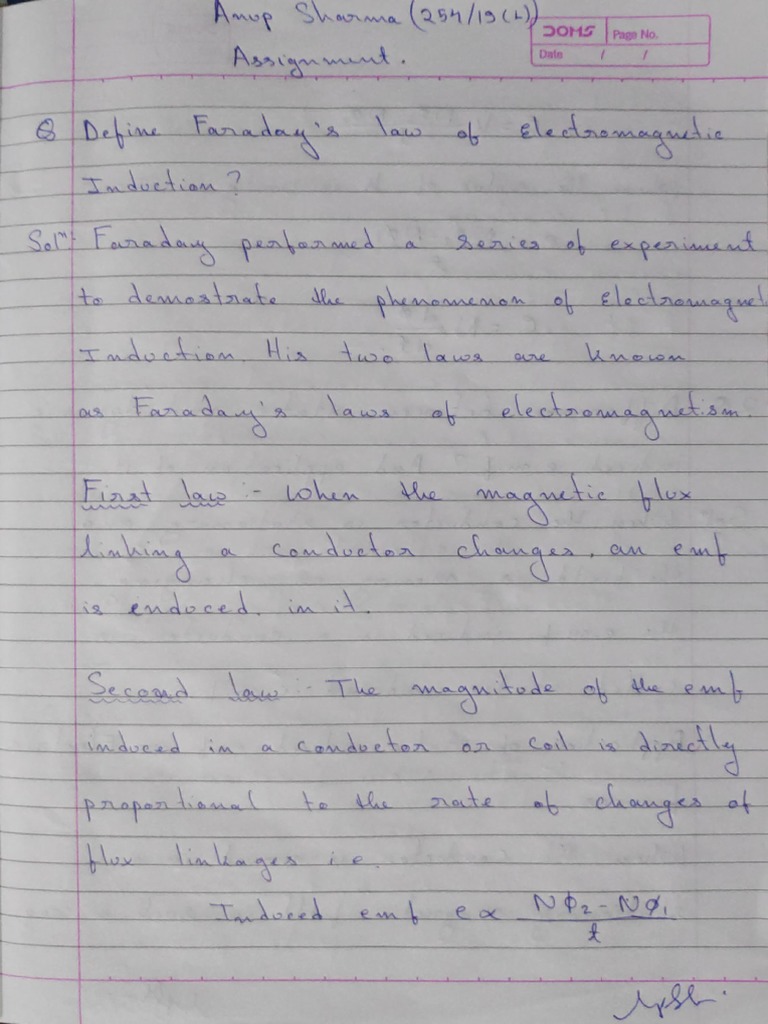 Anup Sharma (254/19(L))
DOMS Page No.
Date / /
Assignment.
Q Define Faraday's law of Electromagnetic
Induction?
Solⁿ: Faraday performed a series of experiment
to demostrate the phenomenon of Electromagnet
Induction. His two laws are known
as Faraday's laws of electromagnetism.
First law :- When the magnetic flux
linking a conductor changes, an emf
is enduced. in it.
Second law :- The magnitude of the emf
induced in a conductor or coil is directly
proportional to the rate of changes of
flux linkages i.e.
Induced emf e ∝ (Nϕ₂ - Nϕ₁)/t